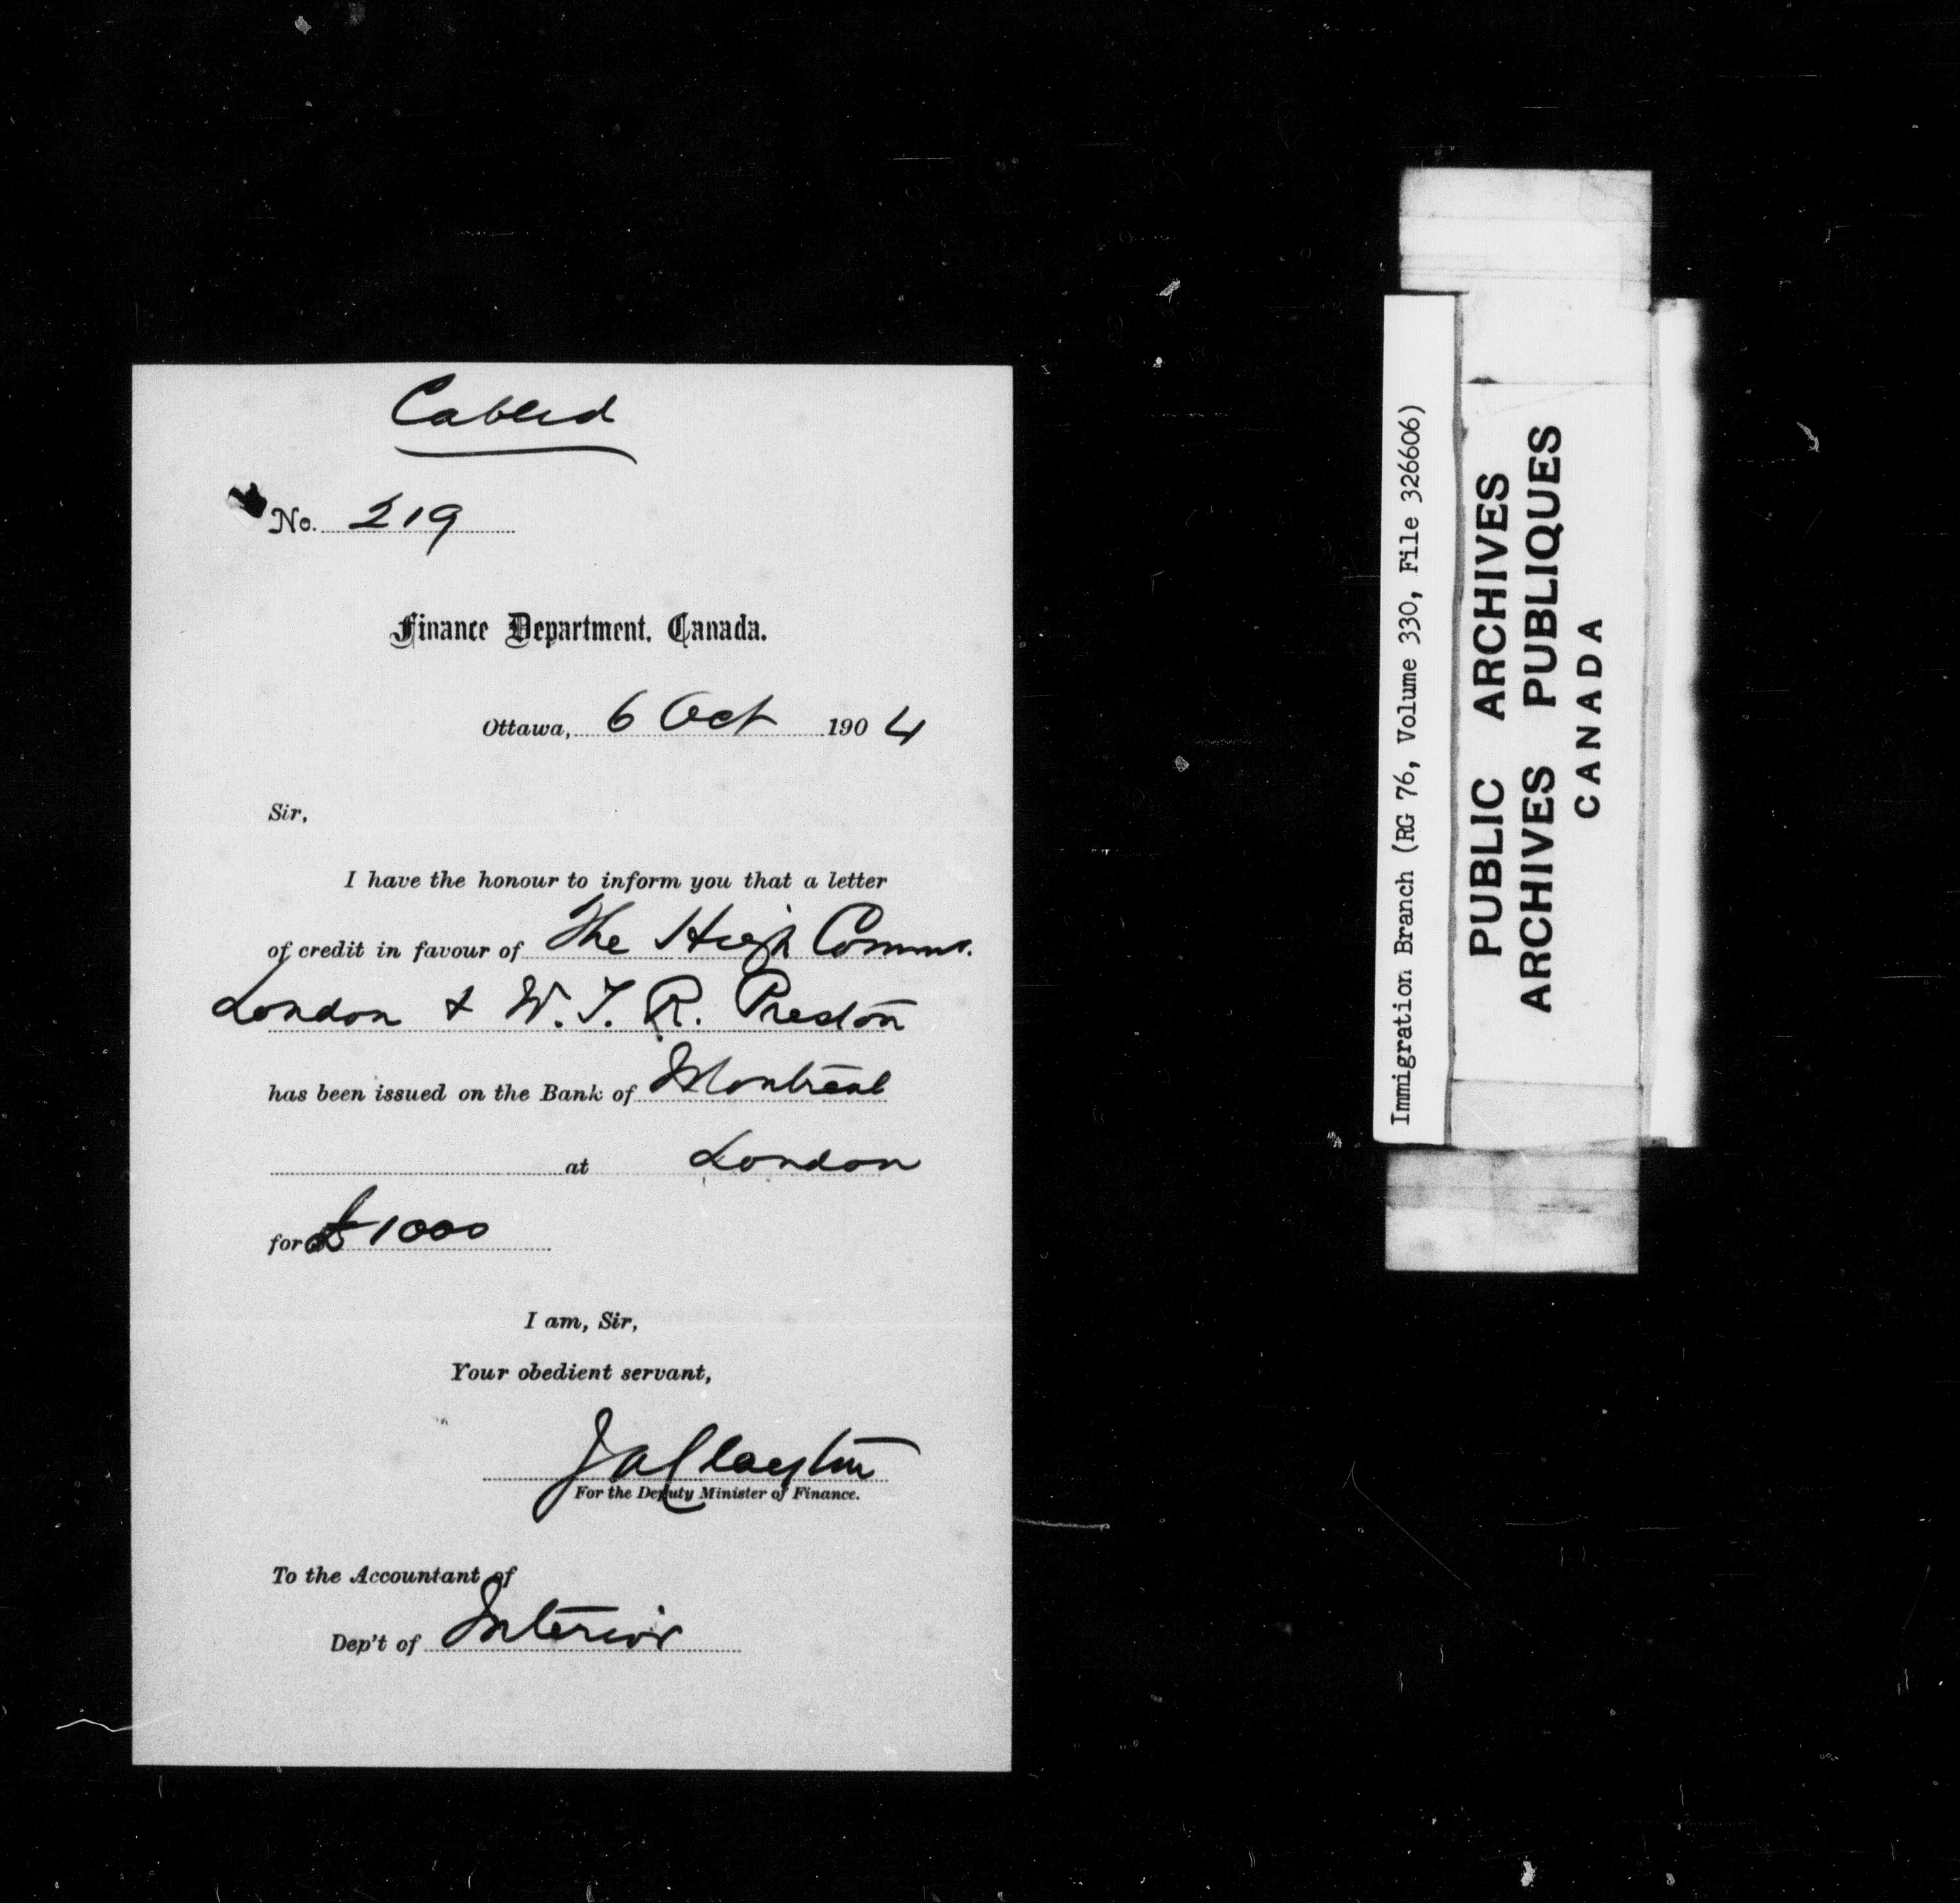 Cabled
No. 219
Finance Department, Canada.
Ottawa, 6 Oct 1904
Sir,
I have the honour to inform you that a letter
of credit in favour of The High Commr.
London & W. T. R. Preston
has been issued on the Bank of Montreal
at London
for £1000
I am, Sir,
Your obedient servant,
J A Clayton
For the Deputy Minister of Finance.
To the Accountant of
Dep't of Interior
Immigration Branch (RG 76, Volume 330, File 326606)
PUBLIC ARCHIVES
ARCHIVES PUBLIQUES
CANADA